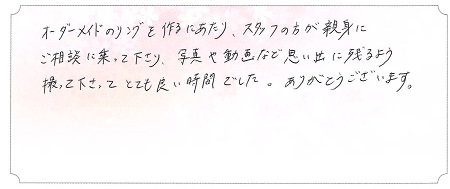 オーダーメイドのリングを作るにあたり、スタッフの方が親身に
ご相談に乗って下さり、写真や動画など思い出に残るよう
撮って下さってとても良い時間でした。ありがとうございます。